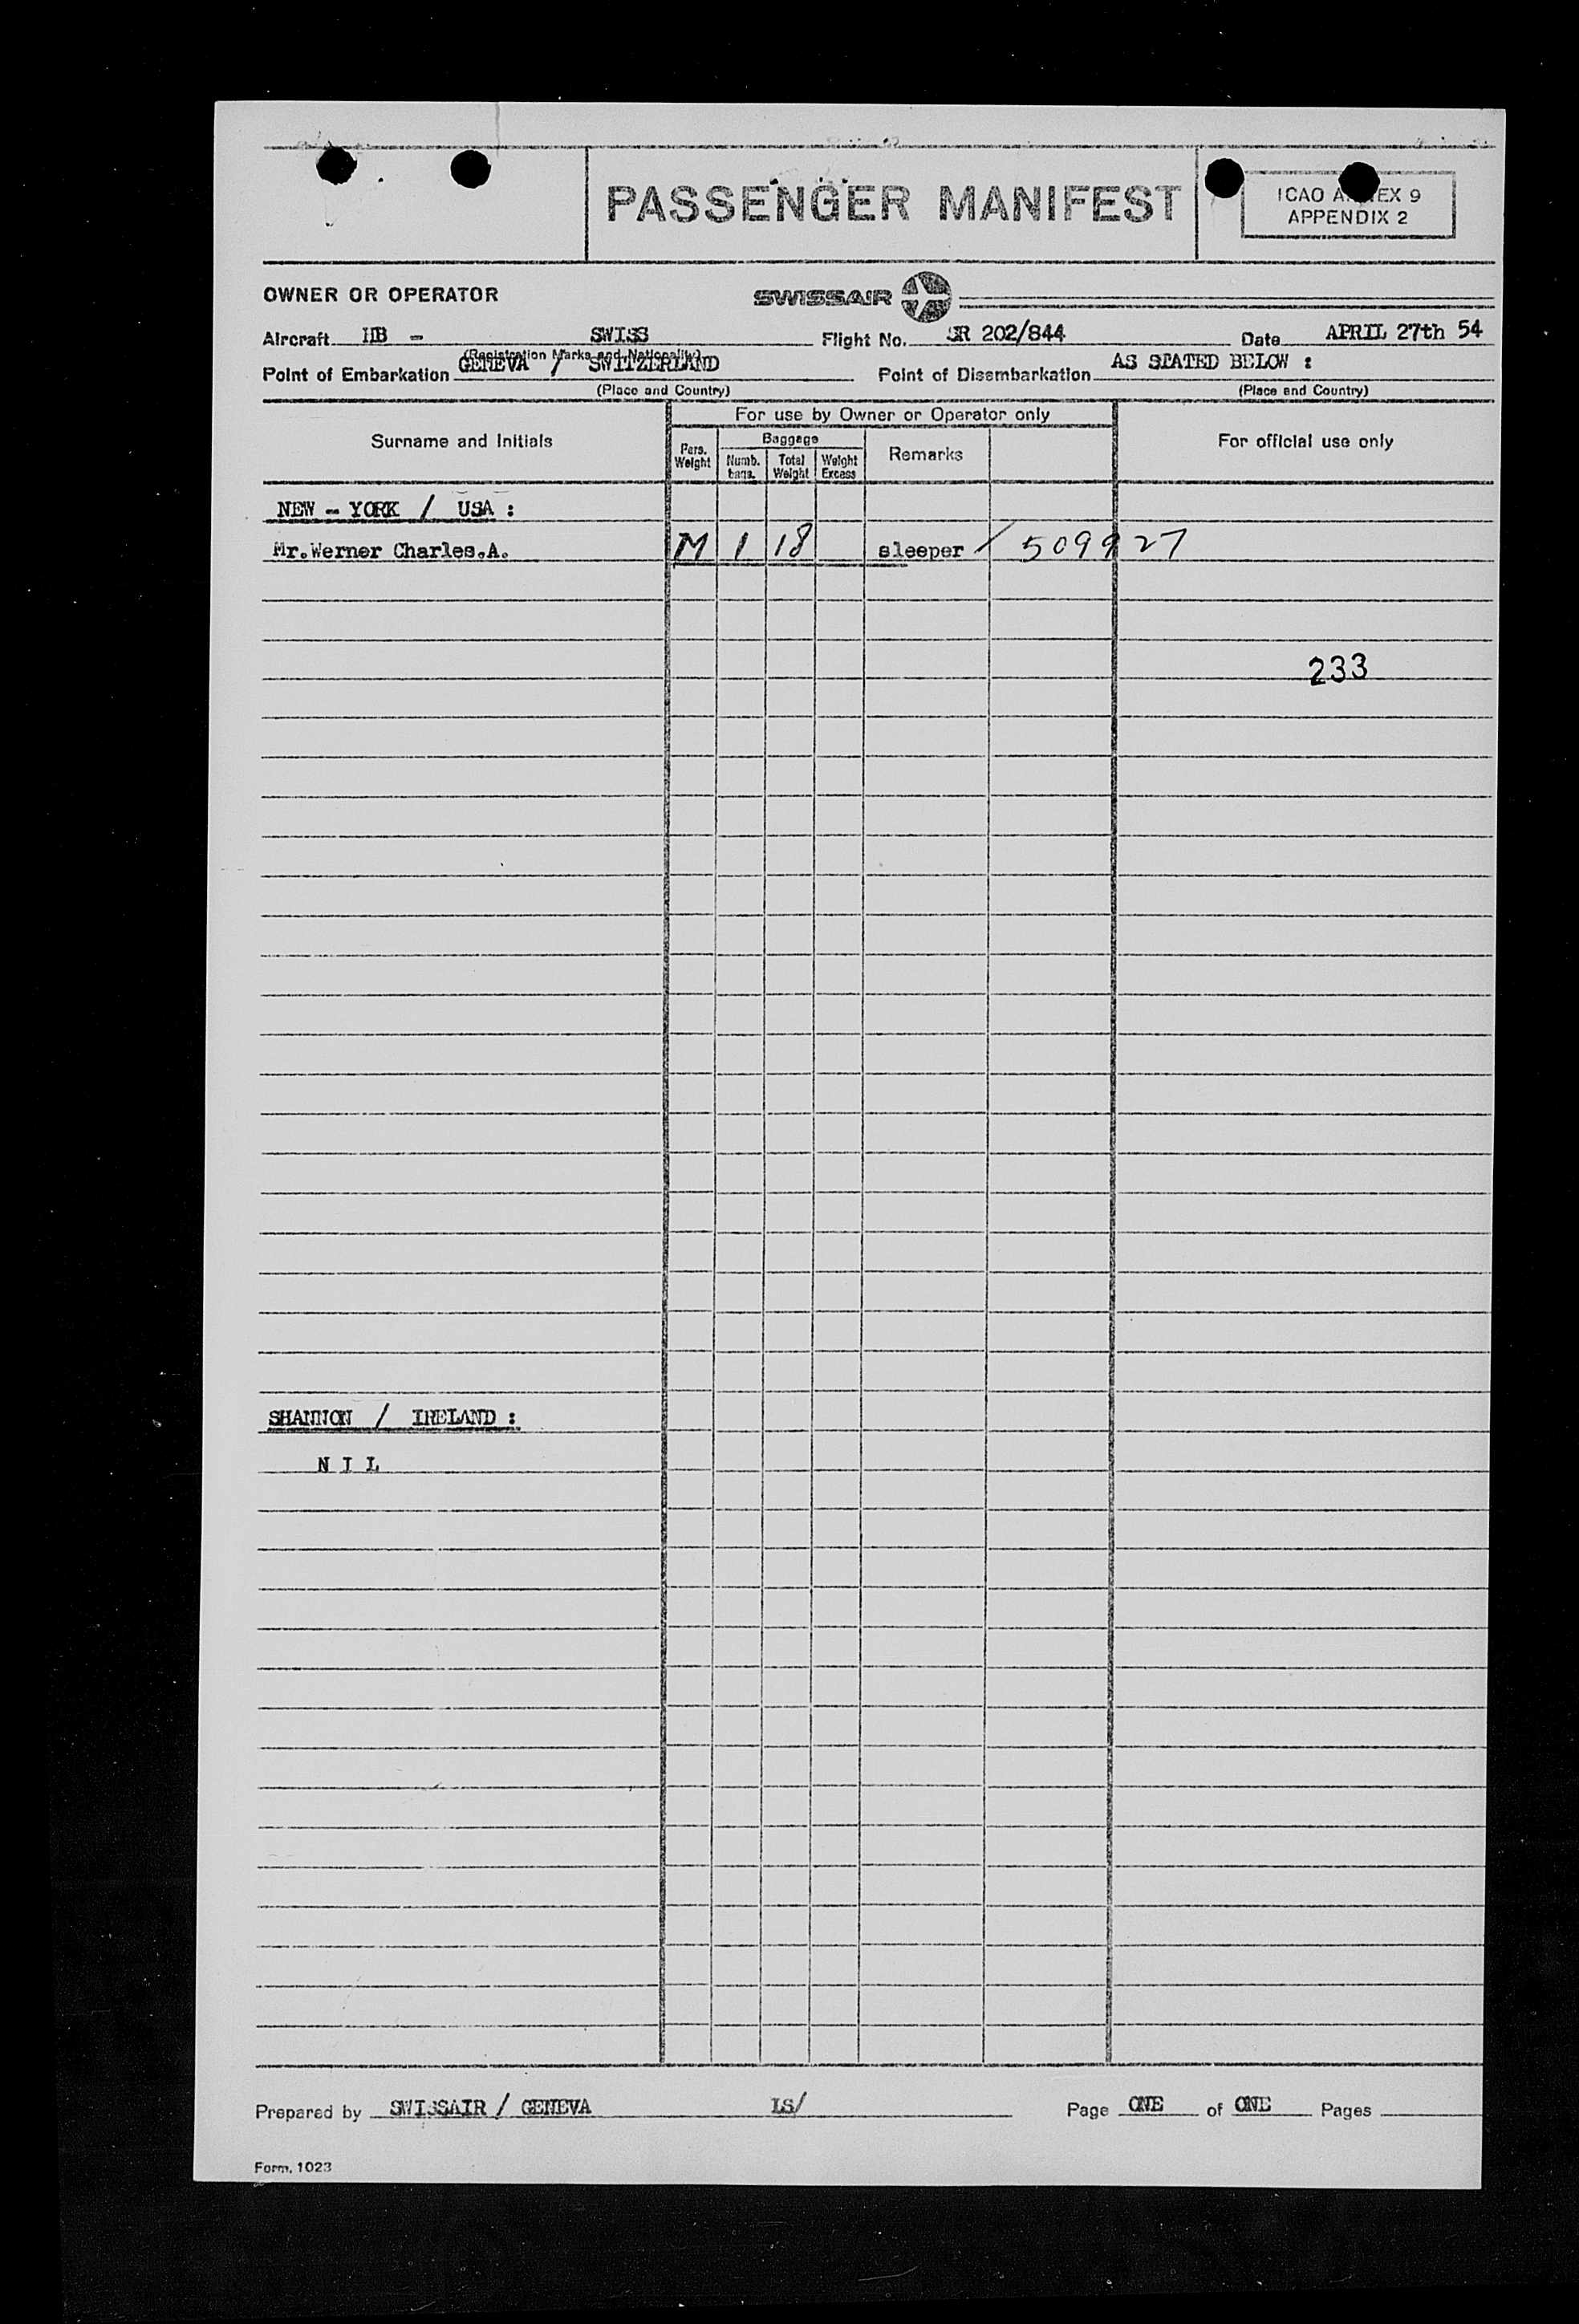 PASSENGER MANIFEST
ICAO ANNEX 9
APPENDIX 2
OWNER OR OPERATOR SWISSAIR
Aircraft HB - SWISS Flight No. SR 202/844 Date APRIL 27th 54
(Registration Marks and Nationality)
Point of Embarkation GENEVA / SWITZERLAND Point of Disembarkation AS STATED BELOW :
(Place and Country) (Place and Country)
For use by Owner or Operator only
Surname and Initials Pers. Weight Baggage Numb. bags. Total Weight Weight Excess Remarks For official use only
NEW - YORK / USA :
Mr.Werner Charles.A. M 1 18 sleeper / 509927
233
SHANNON / IRELAND :
N I L
Prepared by SWISSAIR / GENEVA LS/ Page ONE of ONE Pages
Form. 1023